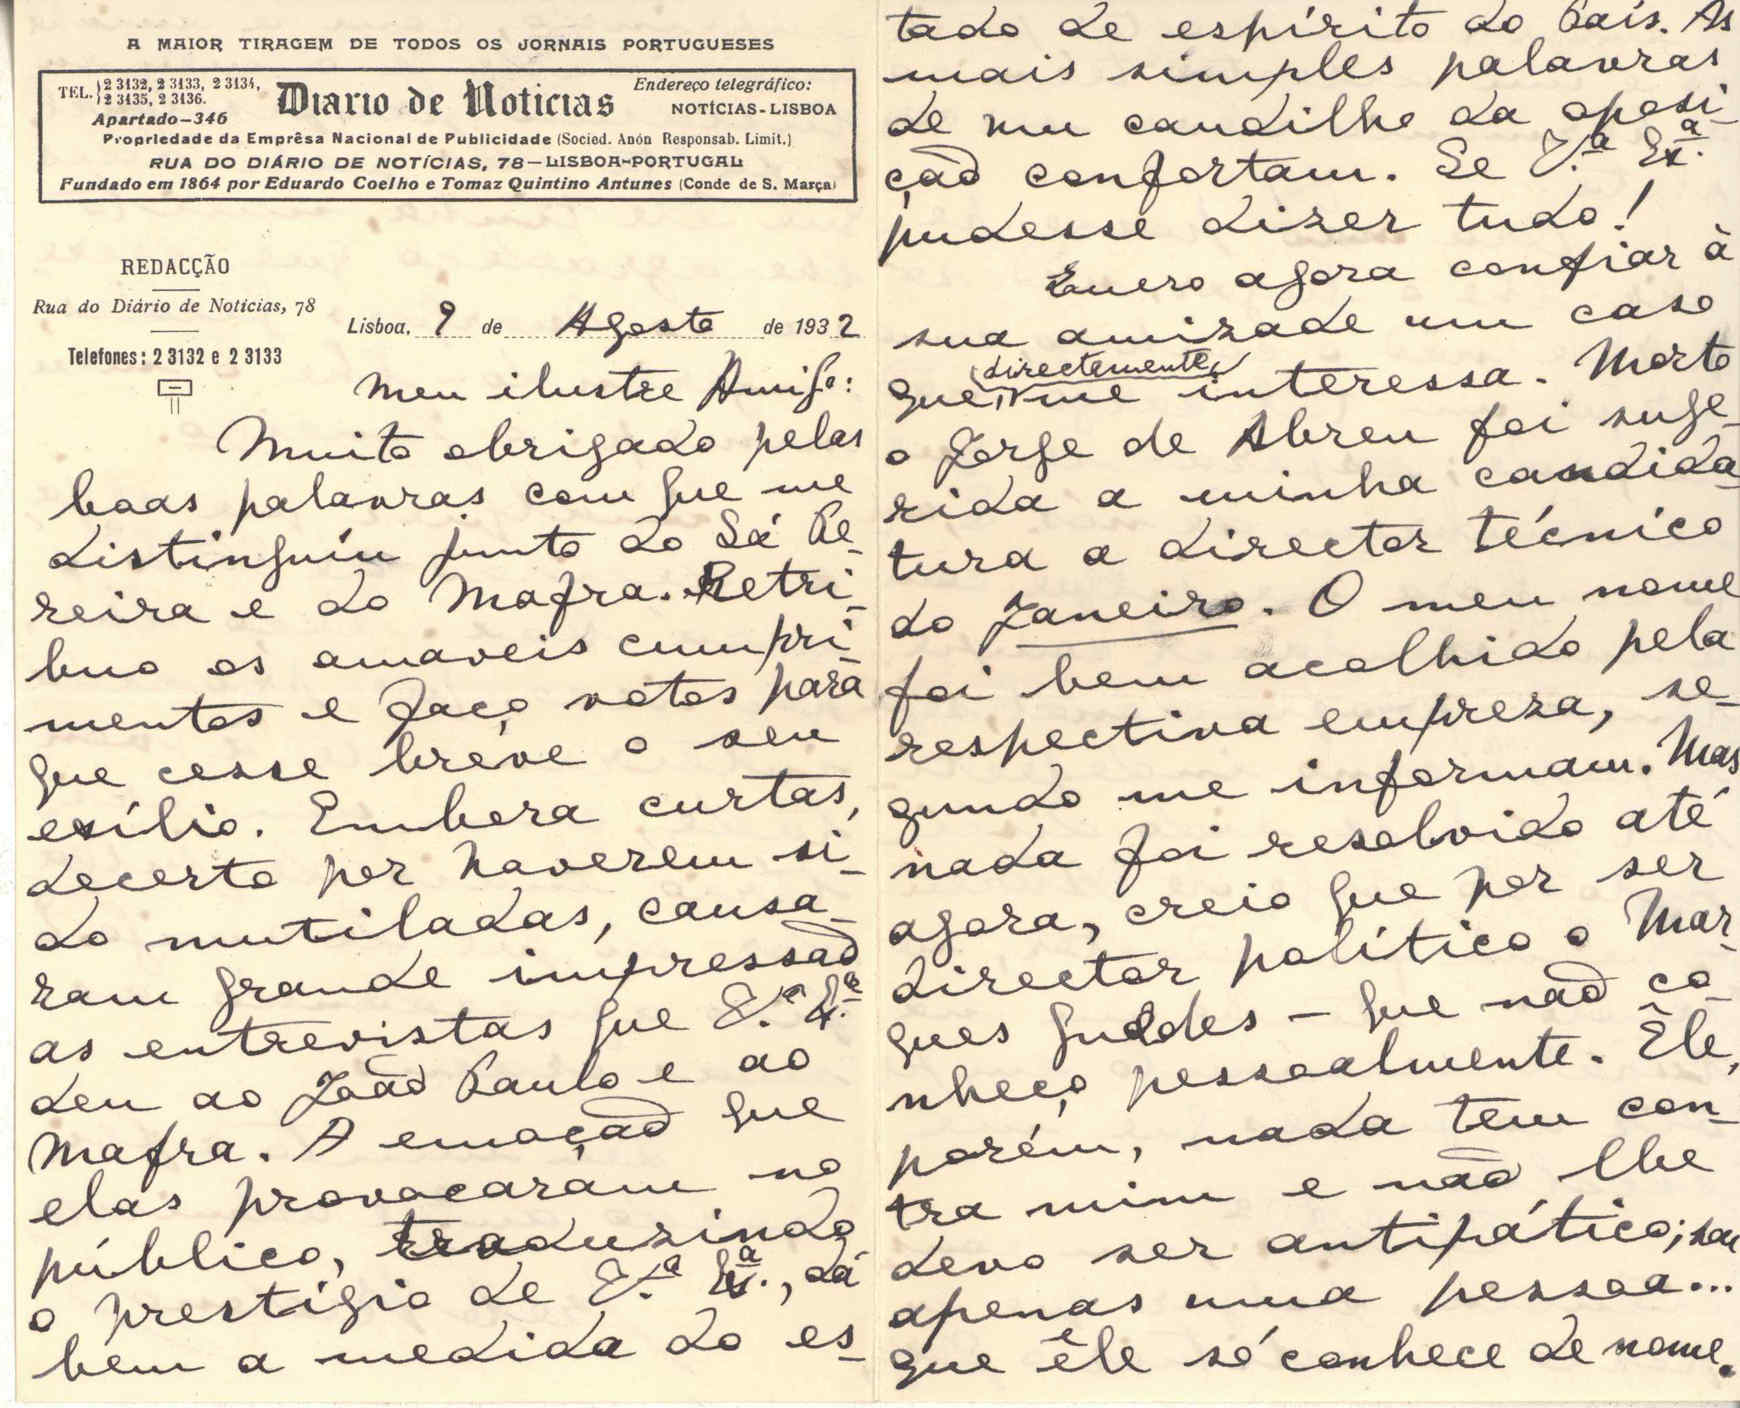 A MAIOR TIRAGEM DE TODOS OS JORNAIS PORTUGUESES
TEL. 2 3132, 2 3133, 2 3134,
2 3135, 2 3136.
Apartado-346
Diario de Noticias
Endereço telegráfico:
NOTÍCIAS-LISBOA
Propriedade da Emprêsa Nacional de Publicidade (Socied. Anón Responsab. Limit.)
RUA DO DIÁRIO DE NOTÍCIAS, 78-LISBOA-PORTUGAL
Fundado em 1864 por Eduardo Coelho e Tomaz Quintino Antunes (Conde de S. Março)
REDACÇÃO
Rua do Diário de Noticias, 78
Telefones: 2 3132 e 2 3133
Lisboa, 9 de Agosto de 1932
Meu ilustre Amigo:
Muito obrigado pelas
boas palavras com que me
distinguíu junto do Sá Pe-
reira e do Mafra. Retri-
buo os amaveis cumpri-
mentos e faço votos para
que cesse bréve o seu
exílio. Embora curtas,
decerto por haverem si-
do mutiladas, causa-
ram grande impressão
as entrevistas que V.ª Ex.ª
deu ao João Paulo e ao
Mafra. A emoção que
elas provocáram no
público, traduzindo
o prestígio de V.ª Ex.ª, dá
bem a medida do es-
tado de espírito do País. As
mais simples palavras
de um caudilho da oposi-
ção confortam. Se V.ª Ex.ª
pudesse dizer tudo!
Quero agora confiar à
sua amizade um caso
que directamente me interessa. Morto
o Jorge de Abreu foi suge-
rida a minha candida-
tura a director técnico
do Janeiro. O meu nome
foi bem acolhido pela
respectiva empreza, se-
gundo me informam. Mas
nada foi resolvido até
agora, creio que por ser
director político o Mar-
ques Guedes - que não co-
nheço pessoalmente. Êle,
porém, nada tem con-
tra mim e não lhe
devo ser antipático; sou
apenas uma pessoa...
que êle só conhece de nome.